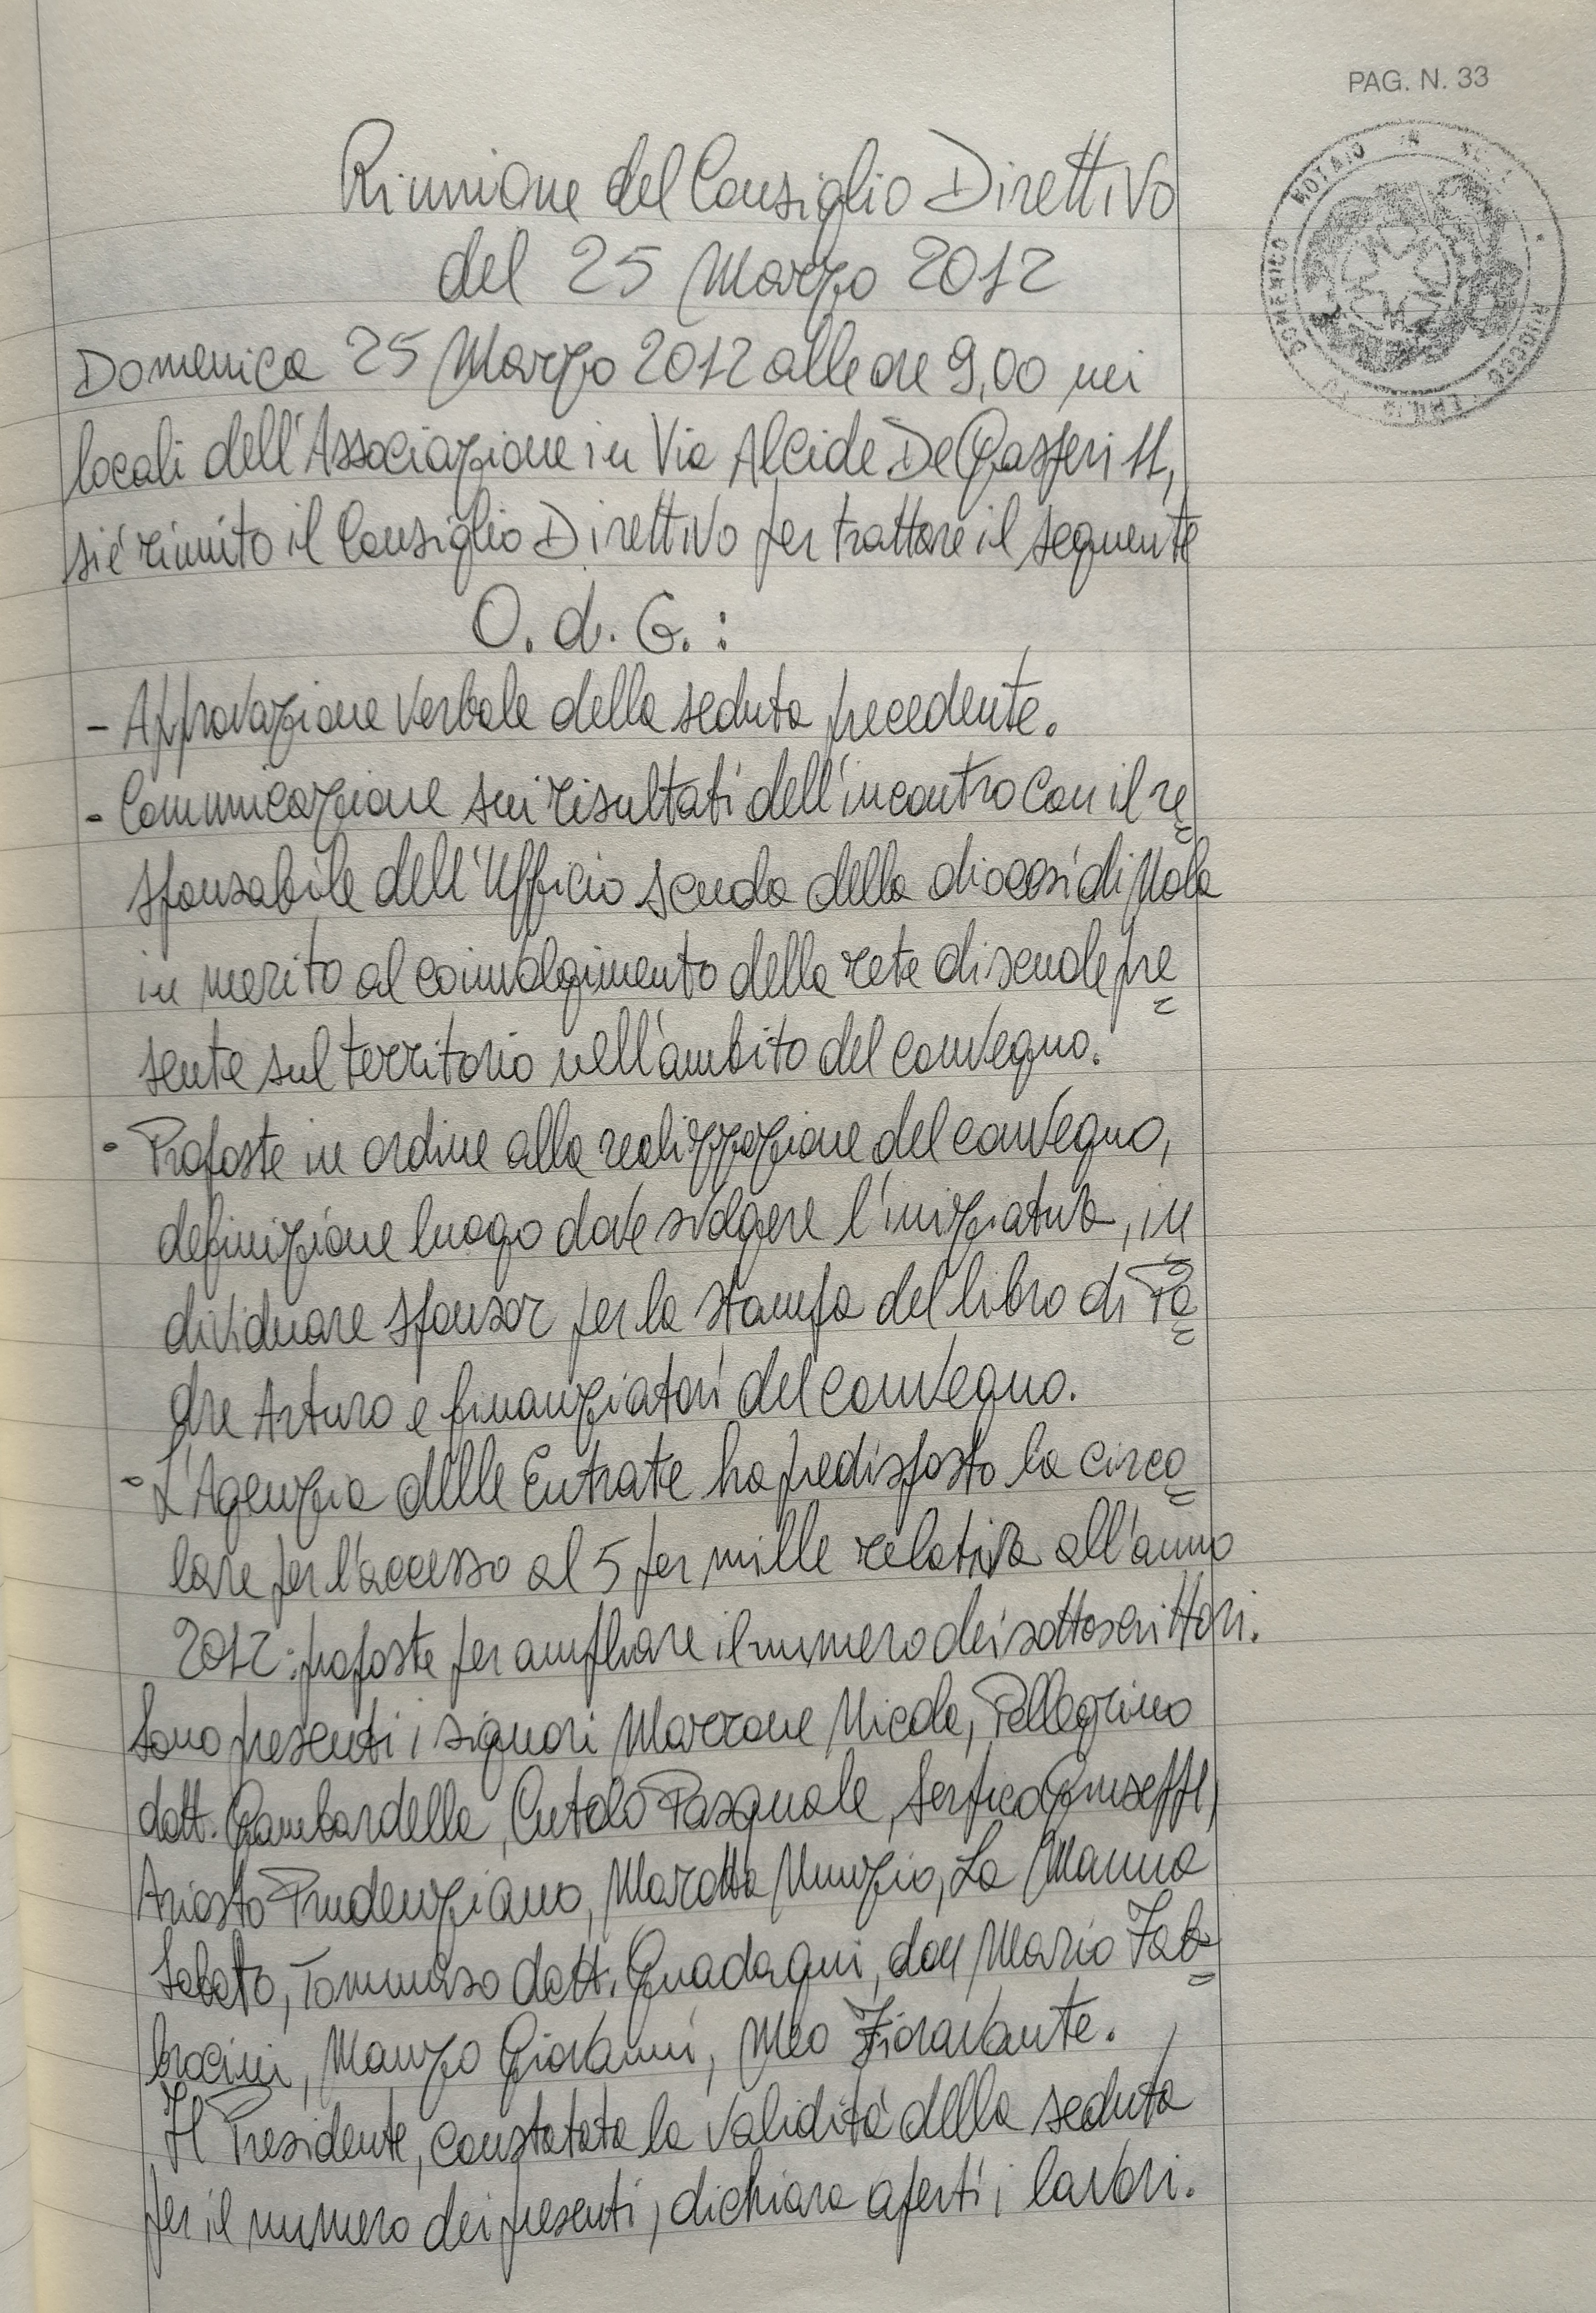 PAG. N. 33
Riunione del Consiglio Direttivo
del 25 Marzo 2012
Domenica 25 Marzo 2012 alle ore 9,00 nei
locali dell'Associazione in Via Alcide De Gasperi 11,
si è riunito il Consiglio Direttivo per trattare il seguente
O. d. G. :
- Approvazione verbale della seduta precedente.
- Comunicazione sui risultati dell'incontro con il re
sponsabile dell'Ufficio scuola della diocesi di Nola
in merito al coinvolgimento della rete di scuole pre
sente sul territorio nell'ambito del convegno.
- Proposte in ordine alla realizzazione del convegno,
definizione luogo dove svolgere l'iniziativa, in
dividuare sponsor per la stampa del libro di Pa
dre Arturo e finanziatori del convegno.
- L'Agenzia delle Entrate ha predisposto la circo
lare per l'accesso al 5 per mille relativa all'anno
2012: proposte per ampliare il numero dei sottoscrittori.
Sono presenti i signori Marrone Nicola, Pellegrino
dott. Gambardella, Cutolo Pasquale, Serpico Giuseppe,
Ariosto Prudenziano, Marotta Nunzio, La Manna
Sabato, Tommaso dott. Guadagni, don Mario Fab-
brocini, Manzo Giovanni, Meo Fioravante.
Il Presidente, constatata la validità della seduta
per il numero dei presenti, dichiara aperti i lavori.